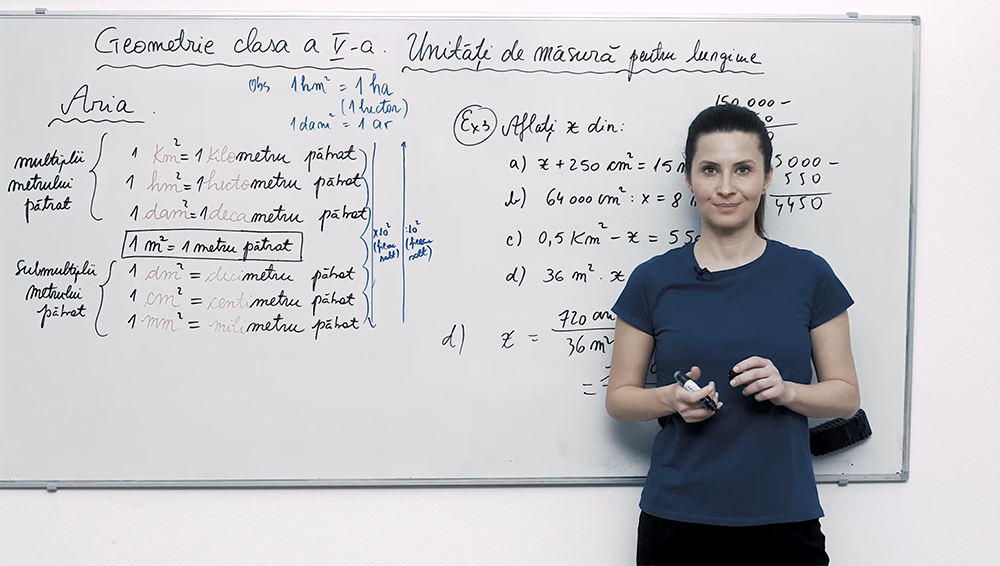 Geometrie clasa a V-a. Unități de măsură pentru lungime
Aria
Obs 1 hm² = 1 ha
(1 hectar)
1 dam² = 1 ar
multiplii
metrului
pătrat
1 Km² = 1 kilometru pătrat
1 hm² = 1 hectometru pătrat
1 dam² = 1 decametru pătrat
1 m² = 1 metru pătrat
Submultiplii
metrului
pătrat
1 dm² = decimetru pătrat
1 cm² = centimetru pătrat
1 mm² = milimetru pătrat
x10²
:10²
Ex3 Aflați x din:
a) x + 250 cm² = 15
b) 64 000 cm² : x = 8
c) 0,5 Km² - x = 5
d) 36 m² . x
d) x = 720
36 m²
=
150 000 -
5000 -
550
4450